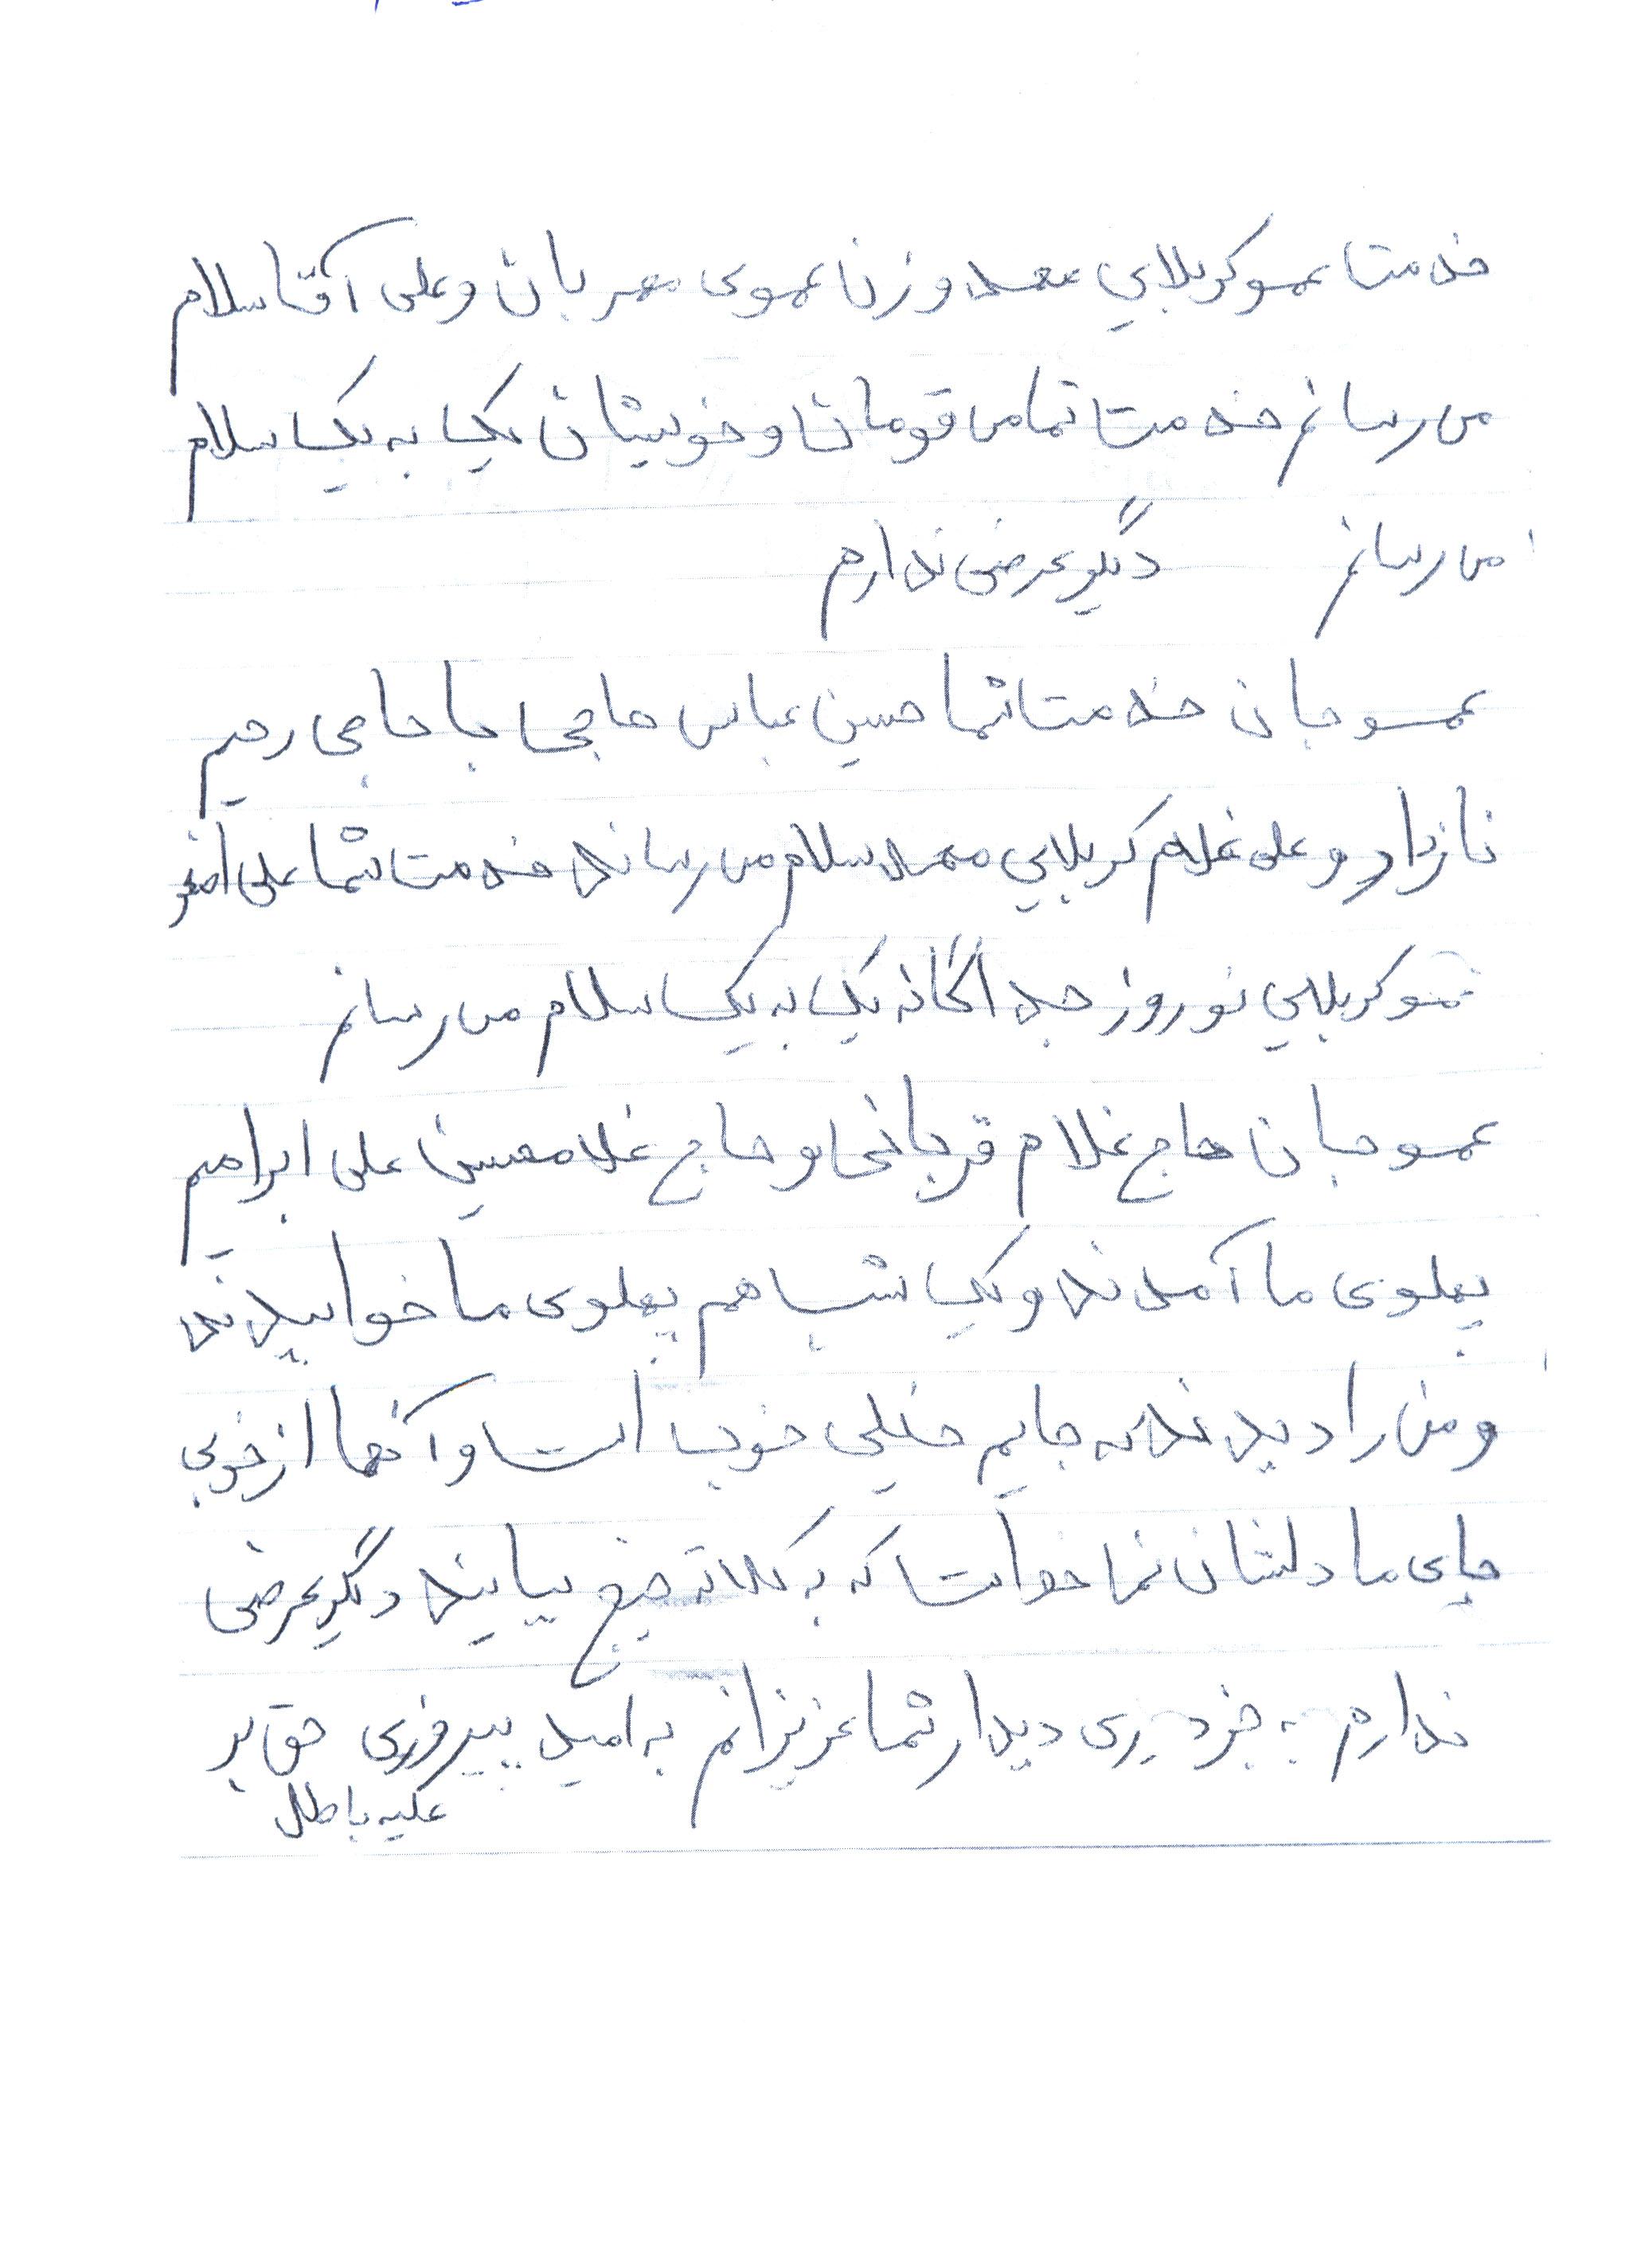 خدمت عمو کربلایی محمد و زن عموی مهربان و علی آقا سلام
می رسانم خدمت تمامی قومان و خویشان یک به یک سلام
می رسانم دیگر عرضی ندارم
عمو جان خدمت شما حسین عباس حاجی با حاجی رحیم
نازدار و علی غلام کربلایی محمد سلام می رساند خدمت شما علی اصغر
عمو کربلایی نوروز جداگانه یک به یک سلام می رسانم
عمو جان حاج غلام قربانی و حاج غلامحسین علی ابراهیم
پهلوی ما آمدند و یک شب هم پهلوی ما خوابیدند
و من را دیدند که جایم خیلی خوب است و آنها از خوبی
جای ما دلشان نماخواست که به کلاته بیایند دیگر عرضی
ندارم به جز دیدار شما عزیزانم به امید پیروزی حق بر
علیه باطل